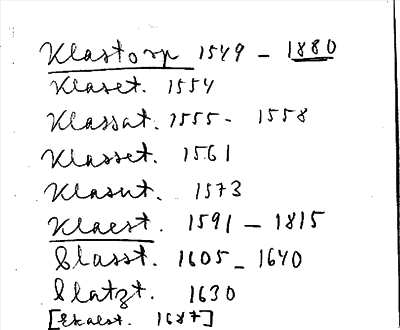 Klastorp 1549 - 1880
Klaset. 1554
Klassat. 1555 - 1558
Klasset. 1561
Klasut. 1573
Klaest. 1591 - 1815
Slasst. 1605 - 1640
Slatzt. 1630
[Ekaest. 1687]